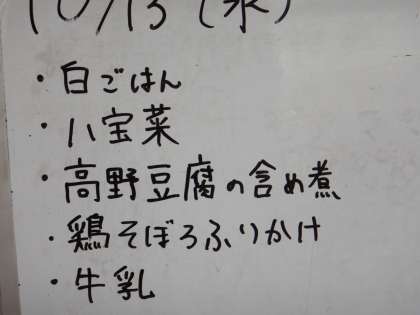 10/13 (水)
・白ごはん
・八宝菜
・高野豆腐の含め煮
・鶏そぼろふりかけ
・牛乳